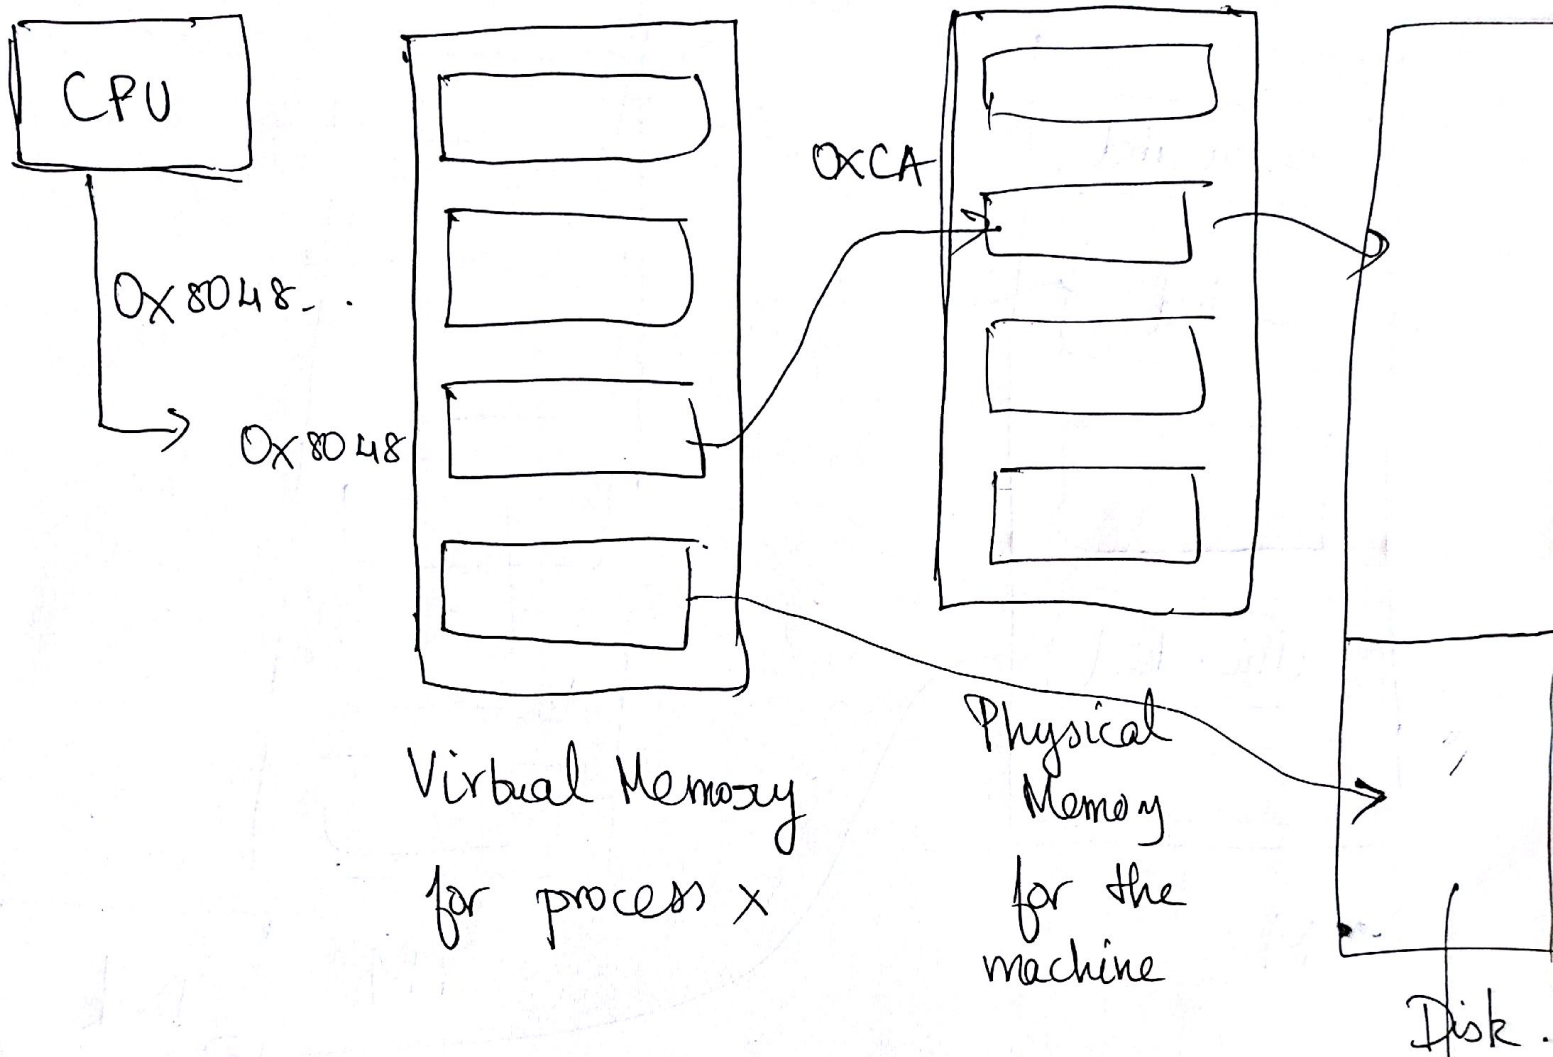 CPU
0x8048..
0x8048
0xCA
Virtual Memory
for process x
Physical
Memoy
for the
machine
Disk.